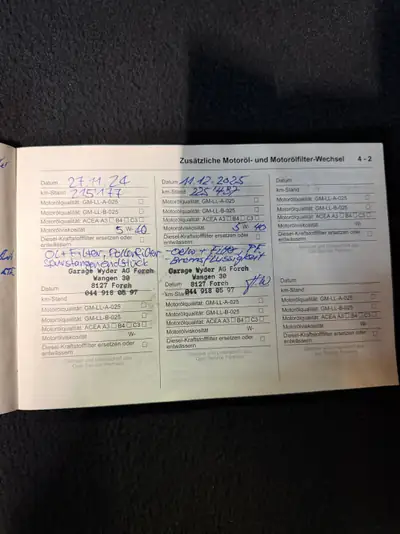 Zusätzliche Motoröl- und Motorölfilter-Wechsel 4 - 2
Datum 27.11.24
km-Stand 215'177
Motorölqualität: GM-LL-A-025 ☐
Motorölqualität: GM-LL-B-025 ☐
Motorölqualität: ACEA A3 ☐ B4 ☐ C3 ☐
Motorölviskosität 5 W- 40
Diesel-Kraftstofffilter ersetzen oder entwässern ☐
Öl + Filter, Pollenfilter
Spurstangenendstück
Garage Wyder AG Forch
Wangen 30
8127 Forch
044 918 05 97
Datum
km-Stand
Motorölqualität: GM-LL-A-025 ☐
Motorölqualität: GM-LL-B-025 ☐
Motorölqualität: ACEA A3 ☐ B4 ☐ C3 ☐
Motorölviskosität W-
Diesel-Kraftstofffilter ersetzen oder
entwässern ☐
Datum 11.12.2025
km-Stand 225'437
Motorölqualität: GM-LL-A-025 ☐
Motorölqualität: GM-LL-B-025 ☐
Motorölqualität: ACEA A3 ☐ B4 ☐ C3 ☐
Motorölviskosität 5 W- 40
Diesel-Kraftstofffilter ersetzen oder
entwässern ☐
+ Filter
Bremsflüssigkeit
Garage Wyder AG Forch
Wangen 30
8127 Forch
044 918 05 97
Datum
km-Stand
Motorölqualität: GM-LL-A-025 ☐
Motorölqualität: GM-LL-B-025 ☐
Motorölqualität: ACEA A3 ☐ B4 ☐ C3 ☐
Motorölviskosität W-
Diesel-Kraftstofffilter ersetzen oder
entwässern ☐
Datum
km-Stand
Motorölqualität: GM-LL-A-025 ☐
Motorölqualität: GM-LL-B-025 ☐
Motorölqualität: ACEA A3 ☐ B4 ☐ C3 ☐
Motorölviskosität W-
Diesel-Kraftstofffilter ersetzen oder
entwässern ☐
Datum
km-Stand
Motorölqualität: GM-LL-A-025 ☐
Motorölqualität: GM-LL-B-025 ☐
Motorölqualität: ACEA A3 ☐ B4 ☐ C3 ☐
Motorölviskosität W-
Diesel-Kraftstofffilter ersetzen oder
entwässern ☐